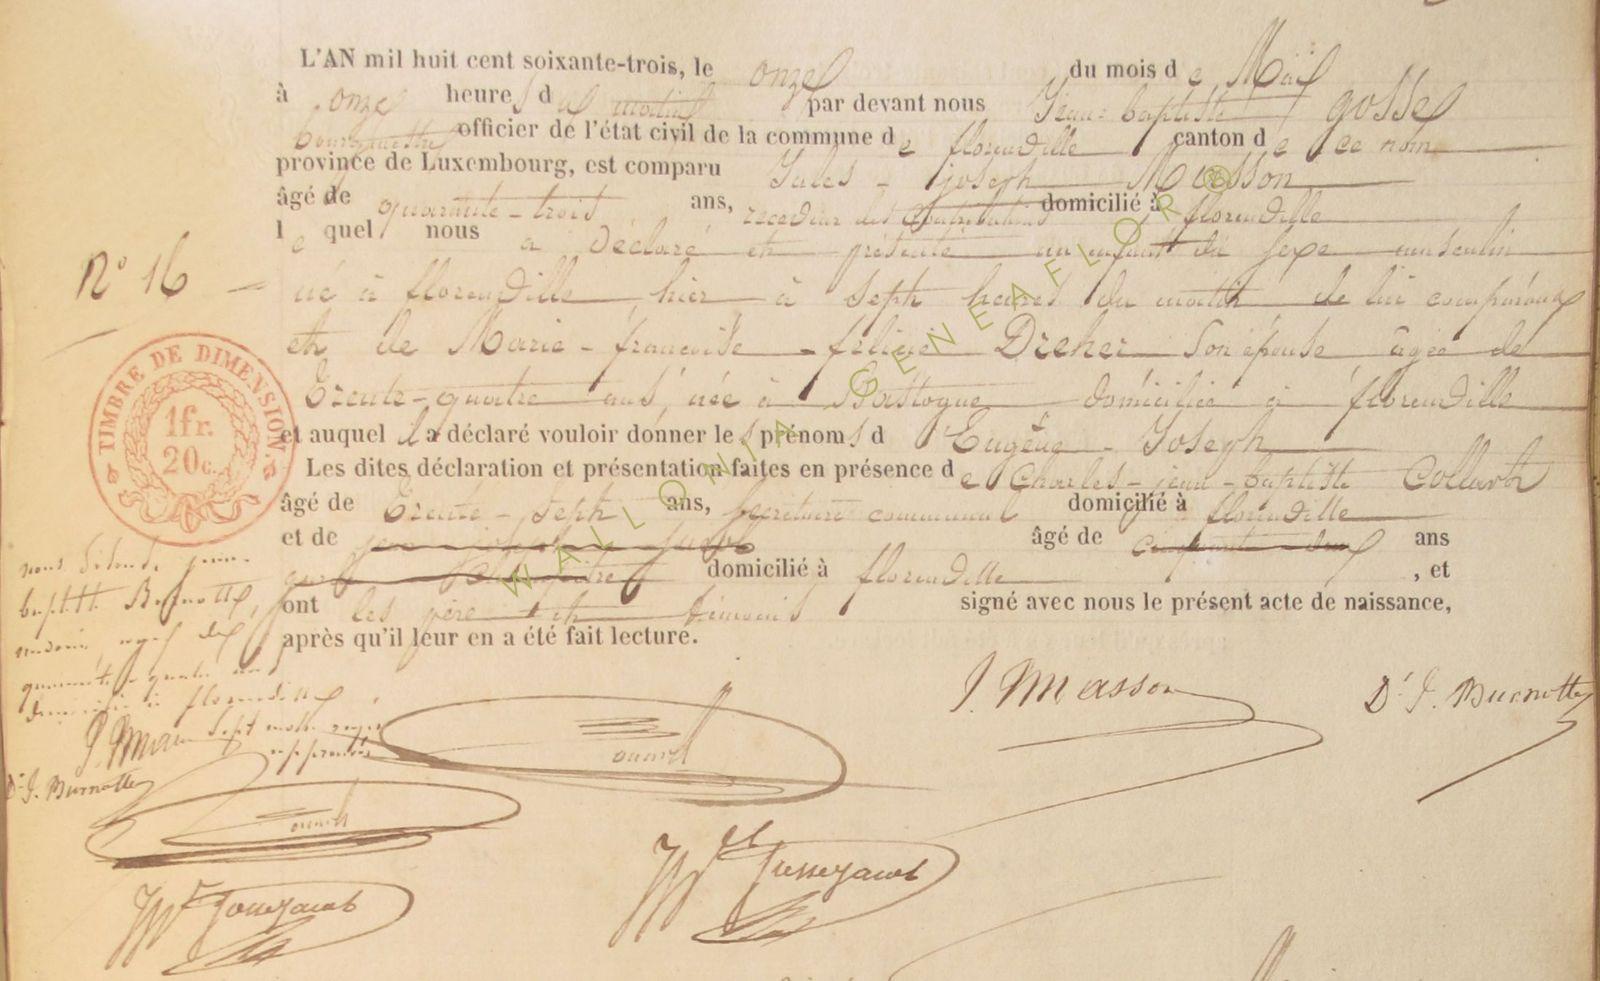 L'AN mil huit cent soixante-trois, le onze du mois de Mai
à onze heures du matin par devant nous Jean-baptiste gosse
bourgmestre officier de l'état civil de la commune de florenville canton de ce nom
province de Luxembourg, est comparu Jules-joseph Masson
âgé de quarante-trois ans, receveur des Contributions domicilié à florenville
lequel nous a déclaré et présenté un enfant du sexe masculin
né à florenville hier à Sept heures du matin de lui comparant
et de Marie-françoise-félicié Dreher Son épouse âgée de
Trente-quatre ans, née à Bastogne domiciliée à florenville
et auquel il a déclaré vouloir donner les prénoms d Eugène-Joseph
Les dites déclaration et présentation faites en présence de Charles-jean-baptiste Collard
âgé de Trente-Sept ans, Secrétaire communal domicilié à florenville
et de jean joseph âgé de cinquante ans
domicilié à florenville, et
ont les père et témoins signé avec nous le présent acte de naissance,
après qu'il leur en a été fait lecture.
N° 16
TIMBRE DE DIMENSION
1fr.
20c.
nous disons, jean
baptiste Burnotte,
médecin, âgé de
quarante-quatre ans
domicilié à florenville
Sept mots rayés
J. Masson
Dr. J. Burnotte
J. Masson
Dr. J. Burnotte
WALLONIA GENEALOR